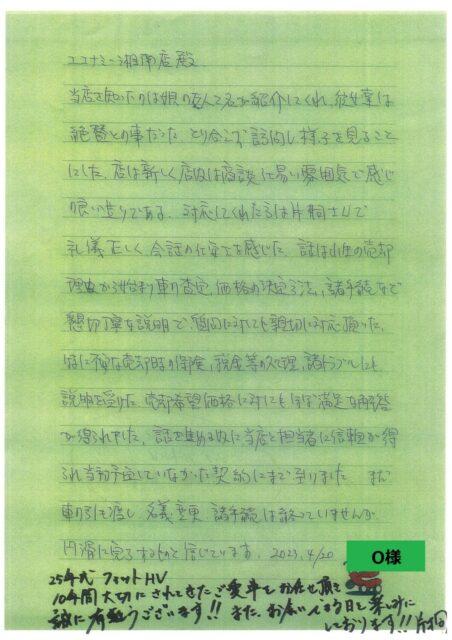 エコノミー湘南店殿
当店を知ったのは娘の友人で名が紹介してくれ、従業は
絶賛との事だった とり合えず訪問し様子を見ること
にした。店は新しく店内は商談に易い雰囲気で感じ
良い造りである。対応してくれた方は片桐さんで
礼儀正しく会話の仕安さを感じた。話は小生の売却
理由から始まり車の査定、価格の決定方法、諸手続など
懇切丁寧な説明で質問に対しても親切に対応頂いた。
特に不安な売却時の保険、税金等の処理、諸トラブルにも
説明を受けた。売却希望価格に対してもほぼ満足な回答
が得られました。話を進める内に当店と担当者に信頼が得
られ当初予定していなかった契約にまで至りました まだ
車の引き渡し 名義変更 諸手続は終っていませんが
円滑に完了するものと信じています。2023.4/20
O様
25年式 フィットHV
10年間大切にされてきたご愛車をお任せ頂き
誠に有難うございます!! また、お会い出来る日を楽しみに
しております!! 片桐